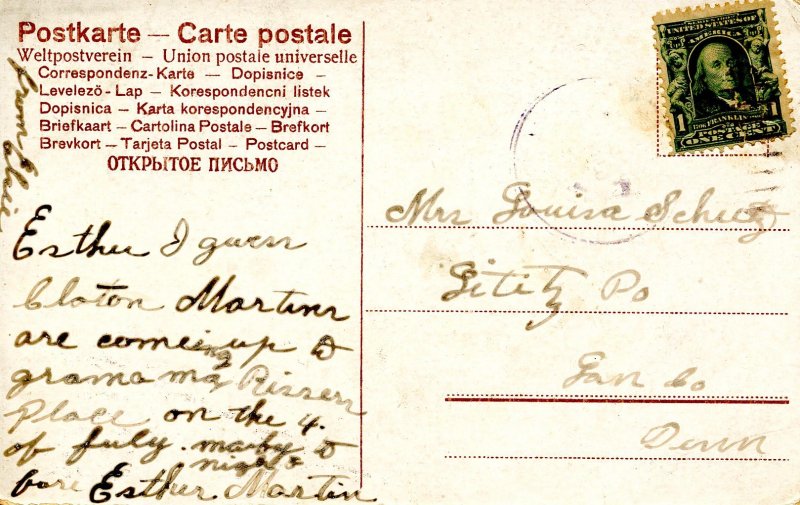 Postkarte — Carte postale
Weltpostverein — Union postale universelle
Correspondenz-Karte — Dopisnice —
Levelezö-Lap — Korespondencni listek
Dopisnica — Karta korespondencyjna —
Briefkaart — Cartolina Postale — Brefkort
Brevkort — Tarjeta Postal — Postcard —
ОТКРЫТОЕ ПИСЬМО
from Elsie
Esther I guess
Claton Martins
are comeing up to
grama ma Rissers
Place on the 4.
of July. mayby to
night
fore Esther Martin
UNITED STATES OF
AMERICA
1 FRANKLIN 1
POSTAGE
ONE CENT
Mrs Louisa Schutz
Lititz Po
Lan Co
Penn